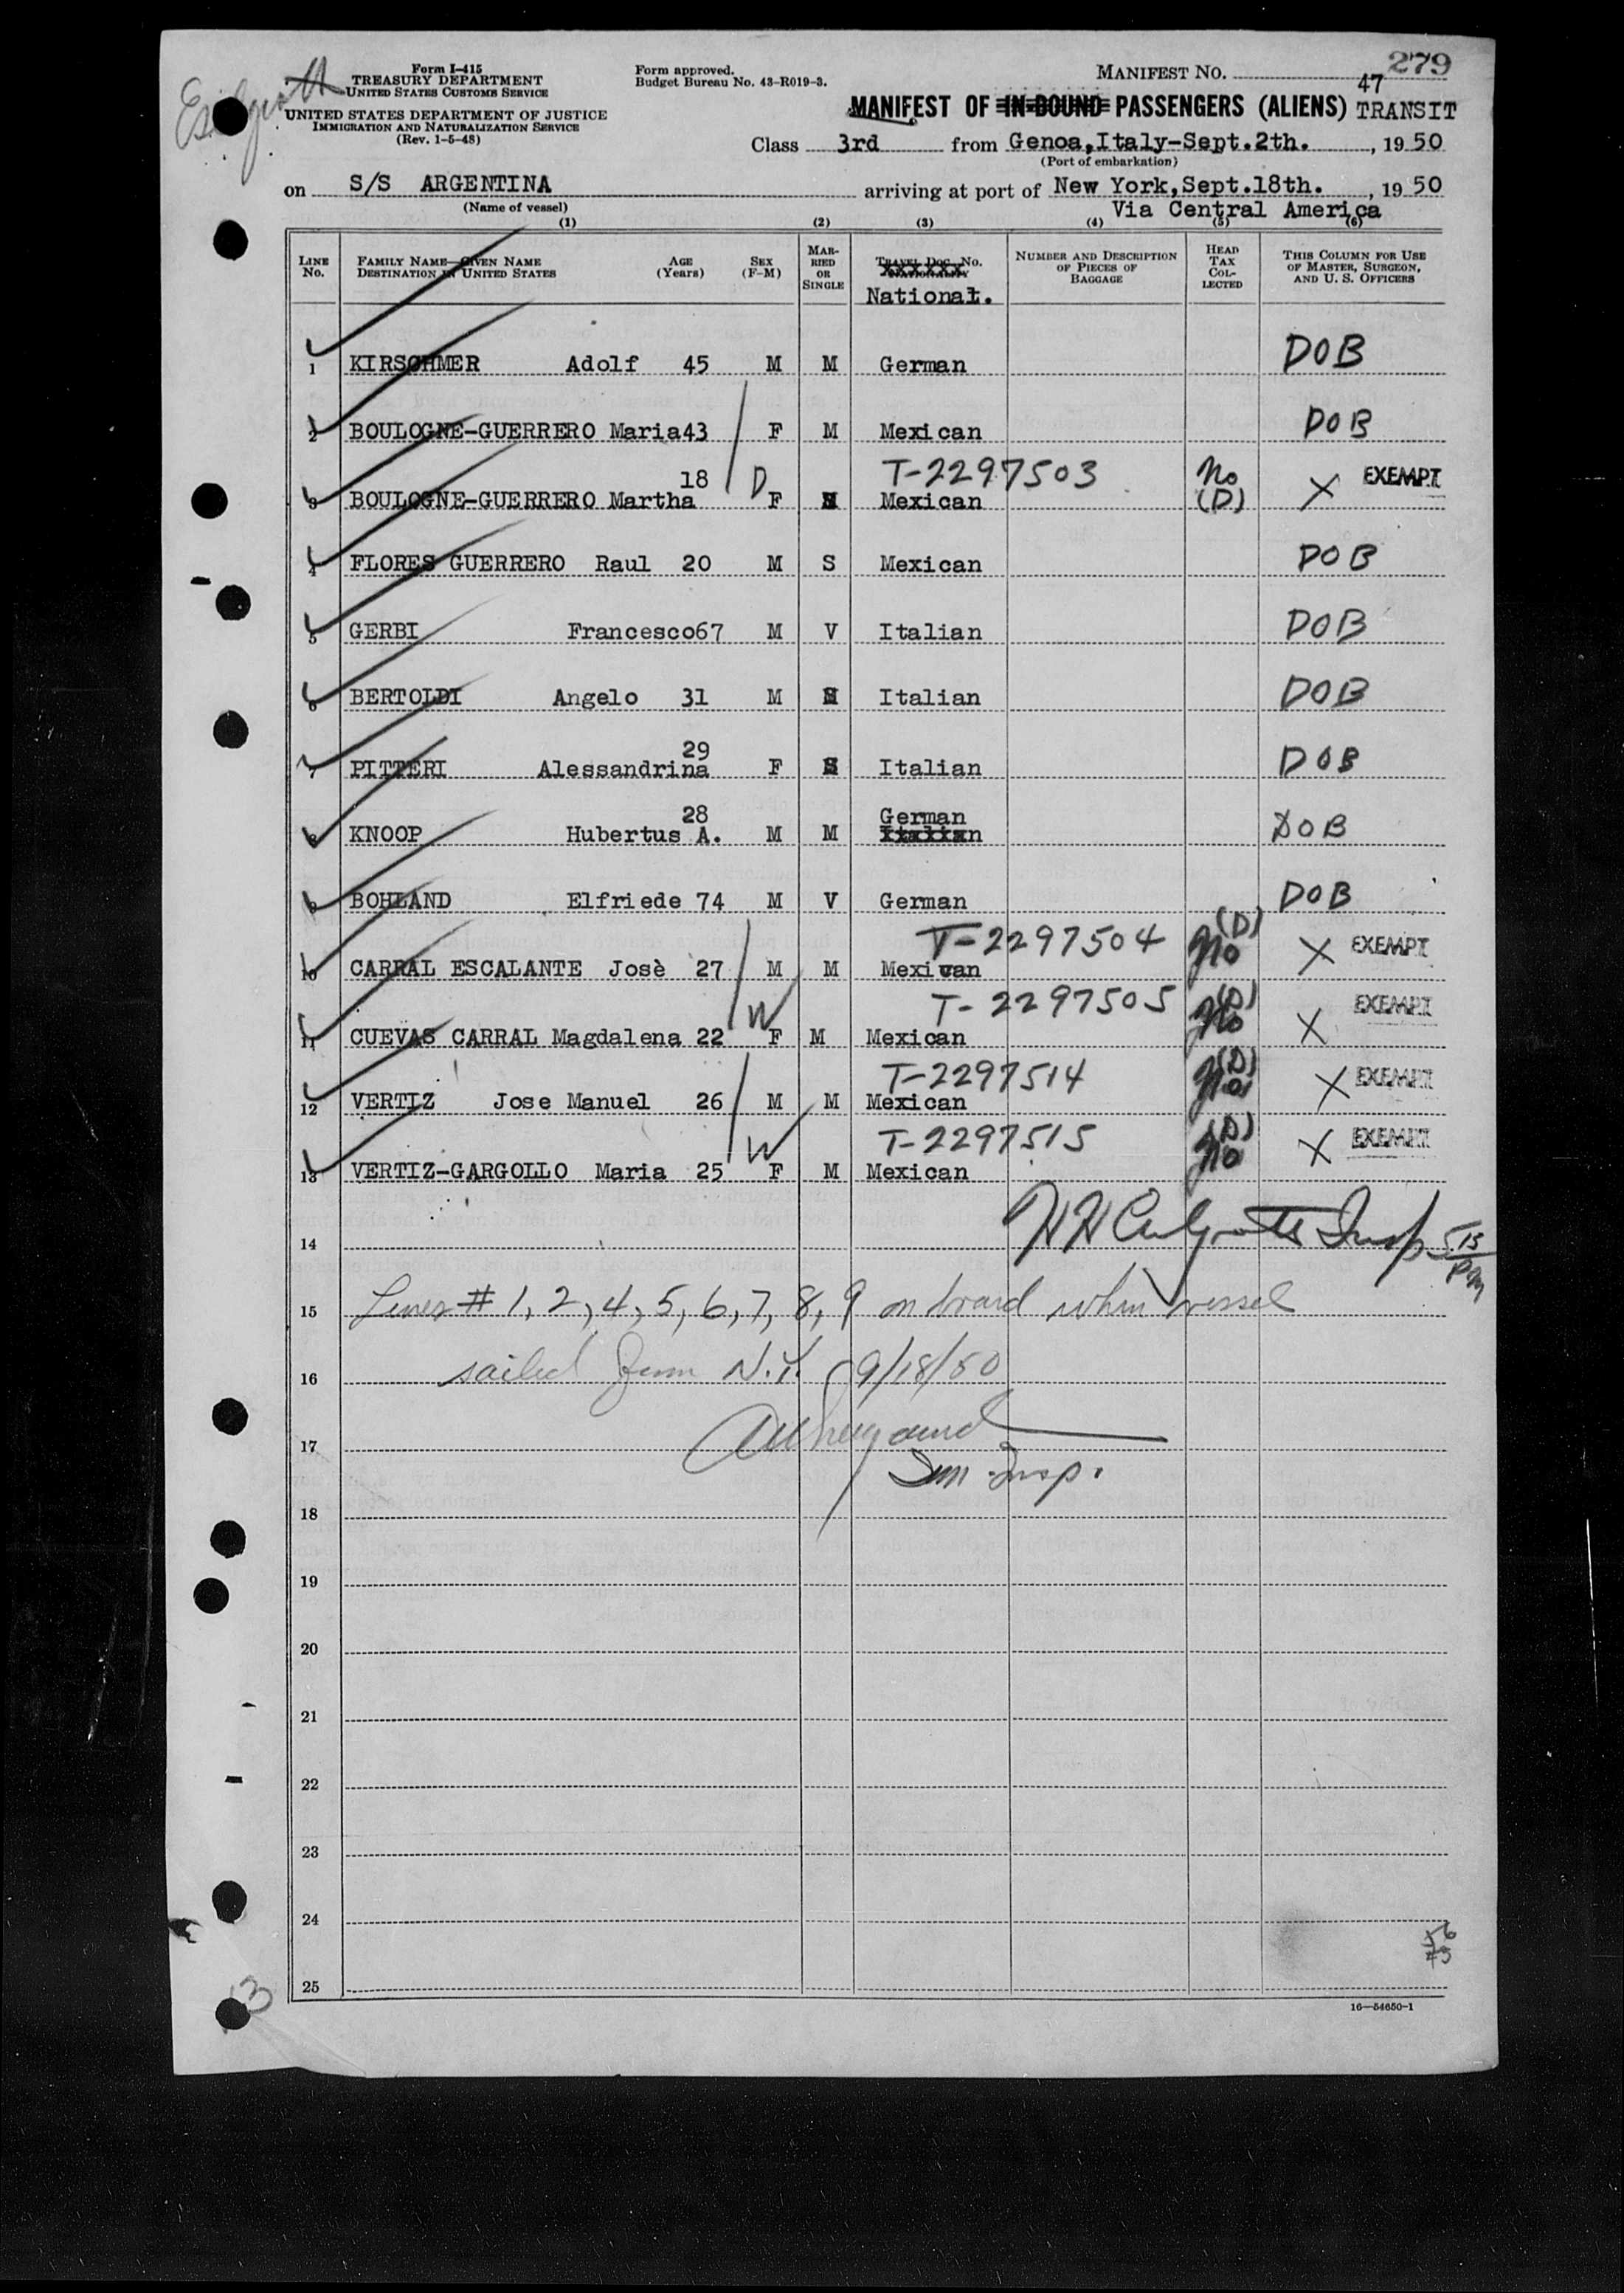 279
Form I-415
TREASURY DEPARTMENT
UNITED STATES CUSTOMS SERVICE
UNITED STATES DEPARTMENT OF JUSTICE
IMMIGRATION AND NATURALIZATION SERVICE
(Rev. 1-5-48)
Form approved.
Budget Bureau No. 43-R019-3.
MANIFEST NO. 47
MANIFEST OF IN-BOUND PASSENGERS (ALIENS) TRANSIT
Class 3rd from Genoa,Italy-Sept.2th. , 19 50
(Port of embarkation)
on S/S ARGENTINA arriving at port of New York,Sept.18th. , 19 50
(Name of vessel) Via Central America
(1) (2) (3) (4) (5) (6)
LINE No. FAMILY NAME—GIVEN NAME DESTINATION IN UNITED STATES AGE (Years) SEX (F-M) MARRIED OR SINGLE TRAVEL DOC. NO. National. NUMBER AND DESCRIPTION OF PIECES OF BAGGAGE HEAD TAX COLLECTED THIS COLUMN FOR USE OF MASTER, SURGEON, AND U. S. OFFICERS
1 KIRSCHMER Adolf 45 M M German DOB
2 BOULOGNE-GUERRERO Maria43 F M Mexican DOB
18 D T-2297503 No EXEMPT
3 BOULOGNE-GUERRERO Martha F Mexican (D) X
4 FLORES GUERRERO Raul 20 M S Mexican DOB
5 GERBI Francesco67 M V Italian DOB
6 BERTOLDI Angelo 31 M Italian DOB
29
7 PITTERI Alessandrina F S Italian DOB
28 German
8 KNOOP Hubertus A. M M Italian DOB
9 BOHLAND Elfriede 74 M V German DOB
T-2297504 (D)
10 CARRAL ESCALANTE Josè 27 M M Mexican No X EXEMPT
T-2297505 (D) EXEMPT
11 CUEVAS CARRAL Magdalena 22 W F M Mexican No X
T-2297514 (D) EXEMPT
12 VERTIZ Jose Manuel 26 M M Mexican No X
T-2297515 (D) EXEMPT
13 VERTIZ-GARGOLLO Maria 25 W F M Mexican No X
14 Insp 5 15 PM
15 Lines # 1, 2, 4, 5, 6, 7, 8, 9 on board when vessel
16 sailed from N.Y. 9/18/50
17
Imm. Insp.
18
19
20
21
22
23
24
25
13
16—54650-1